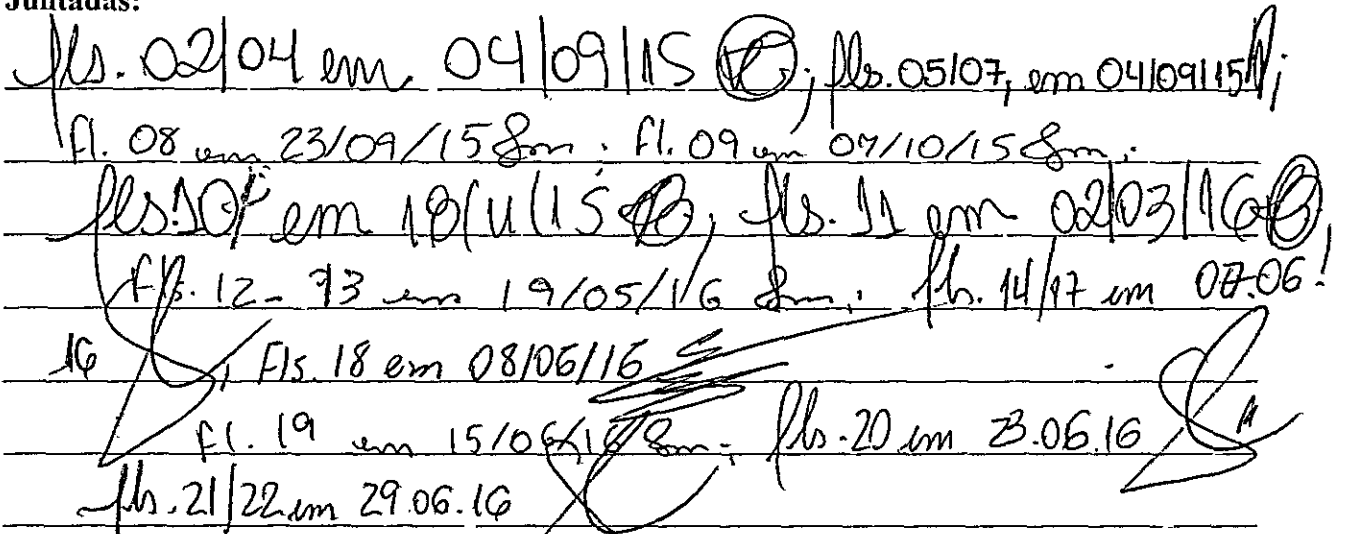 Juntadas:
fls. 02/04 em 04/09/15; fls. 05/07, em 04/09/15;
fl. 08 em 23/09/15. fl. 09 em 07/10/15;
fls. 10 em 18/11/15; fls. 11 em 02/03/16,
fls. 12-13 em 19/05/16; fls. 14/17 em 07.06.
16, Fls. 18 em 08/06/16
fl. 19 em 15/06/16; fls. 20 em 23.06.16
fls. 21/22 em 29.06.16